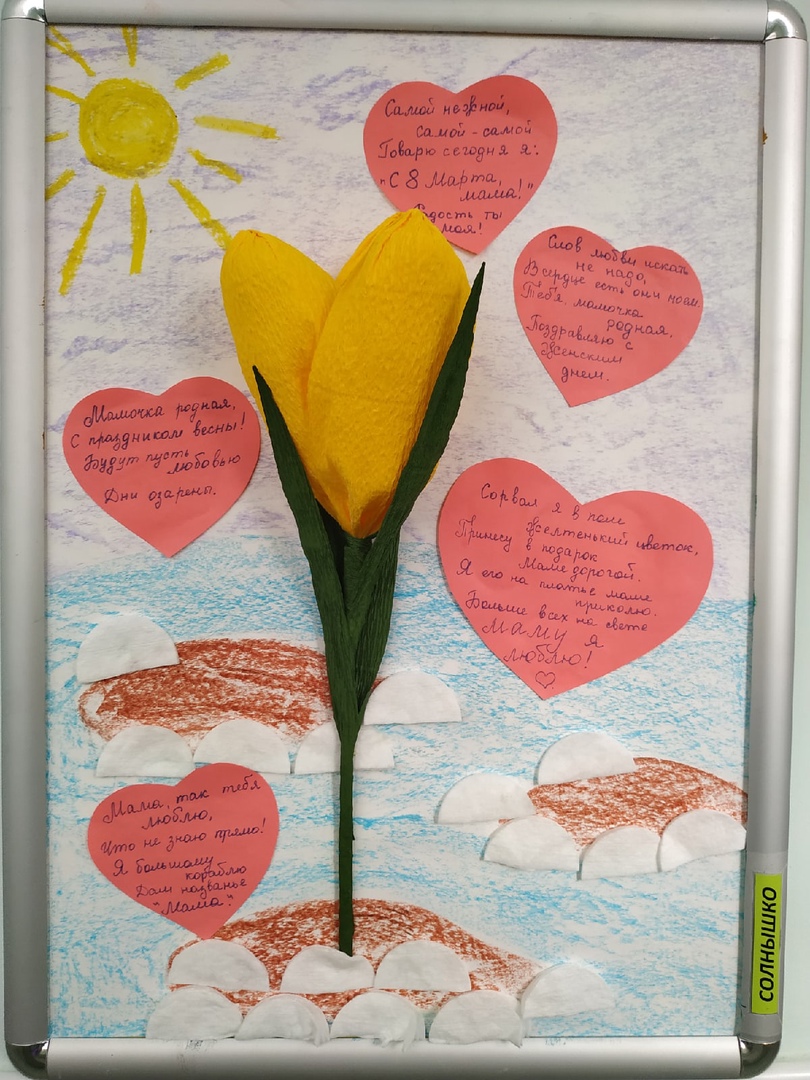 Самой нежной,
самой-самой
Говорю сегодня я:
"С 8 Марта,
мама!"
Радость ты
моя!
Слов любви искать
не надо,
В сердце есть они моём.
Тебя, мамочка
родная,
Поздравляю с
Женским
днем.
Мамочка родная,
С праздником весны!
Будут пусть
любовью
Дни озарены.
Сорвал я в поле
Желтенький цветок,
Принесу в подарок
Маме дорогой.
Я его на платье маме
приколю.
Больше всех на свете
Маму я
люблю!
Мама, так тебя
люблю,
Что не знаю прямо!
Я большому
кораблю
Дам названье
"Мама".
СОЛНЫШКО